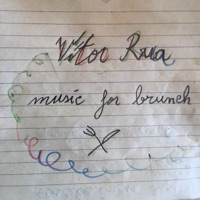 Vítor Rua
music for brunch